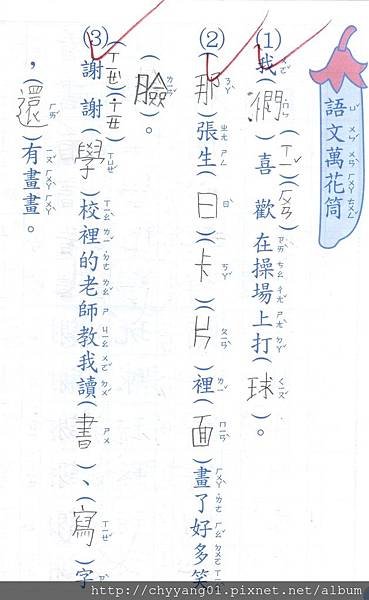 語文萬花筒
(1)我(們)喜(ㄒㄧˇ)歡(ㄏㄨㄢ)在操場上打(球)。
(2)(那)張生(日)(卡)(片)裡(面)畫了好多笑
(臉)。
(3)謝(ㄒㄧㄝˋ)謝(˙ㄒㄧㄝ)(學)校裡的老師教我讀(書)、(寫)字
，(還)有畫畫。
http://chyyang01.pixnet.net/album